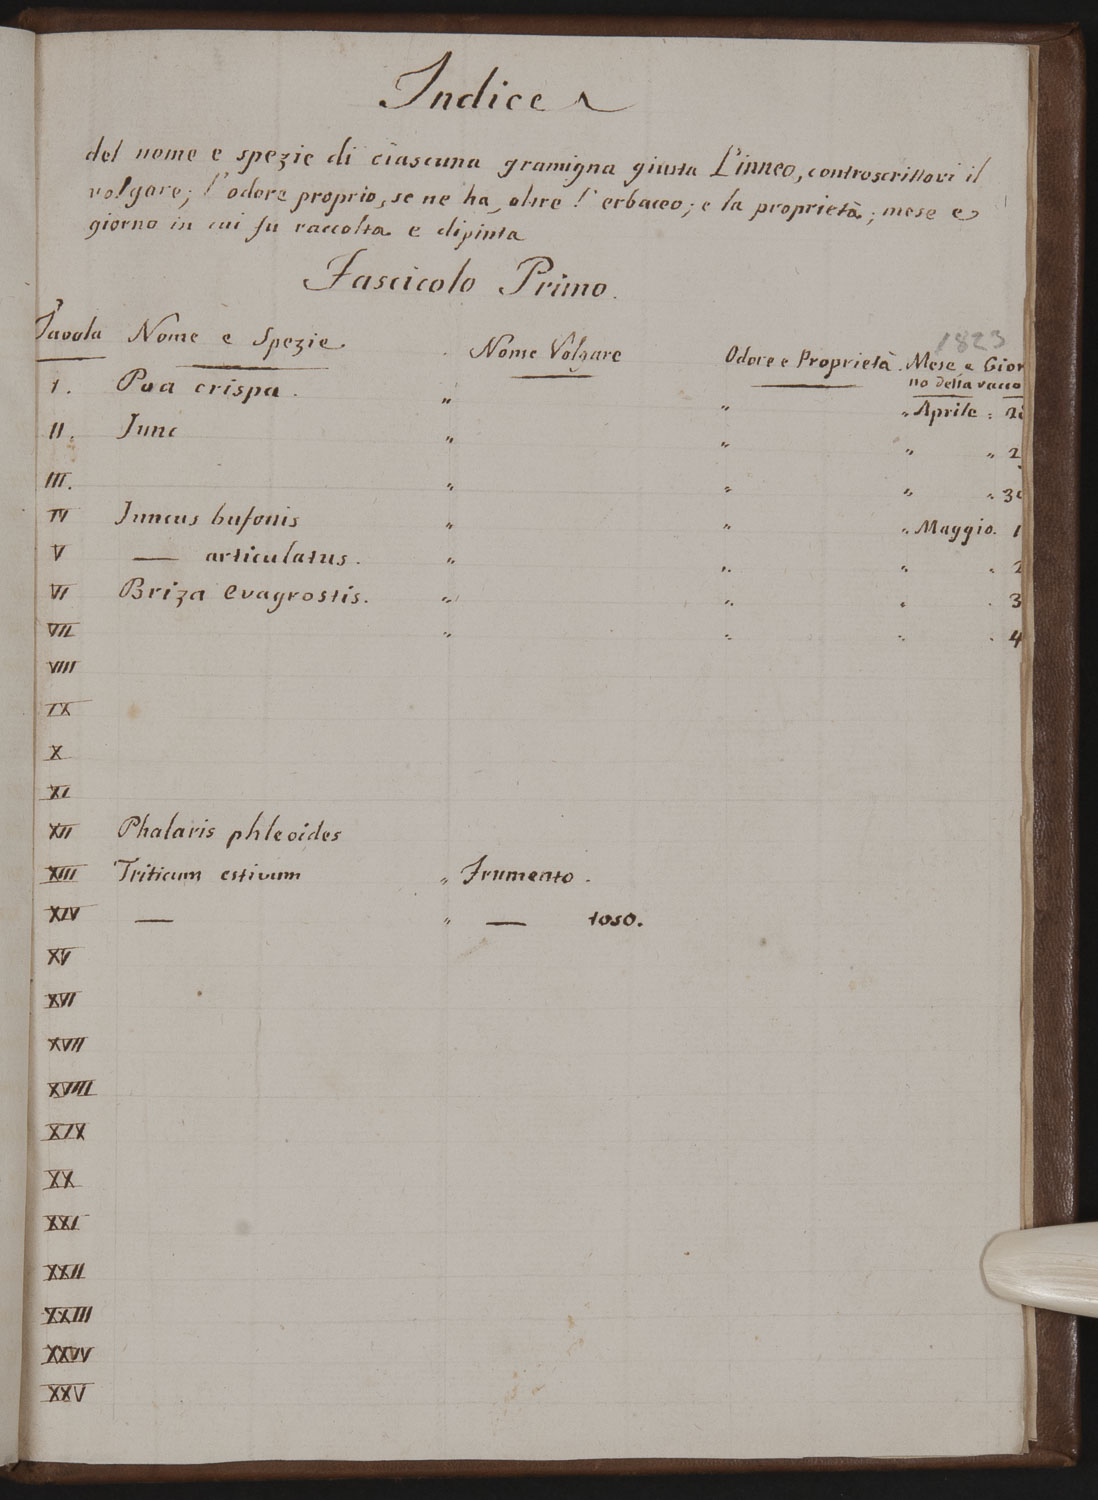 Indice
del nome e spezie di ciascuna gramigna giusta Linneo, controscrittovi il
volgare; l'odore proprio, se ne ha, oltre l'erbaceo; e la proprietà; mese e
giorno in cui fu raccolta e dipinta
Fascicolo Primo.
1823
Tavola Nome e Spezie Nome Volgare Odore e Proprietà. Mese e Gior
no della racco
I. Poa crispa. " " " Aprile : 2
II. Junc " " " " 2
III. " " " " 30
IV Juncus bufonis " " " Maggio. 1
V — articulatus. " " " " 2
VI Briza Evagrostis. " " " " 3
VII " " " " 4
VIII
IX
X
XI
XII Phalaris phleoides
XIII Triticum estivum " Frumento.
XIV — " — toso.
XV
XVI
XVII
XVIII
XIX
XX
XXI
XXII
XXIII
XXIV
XXV